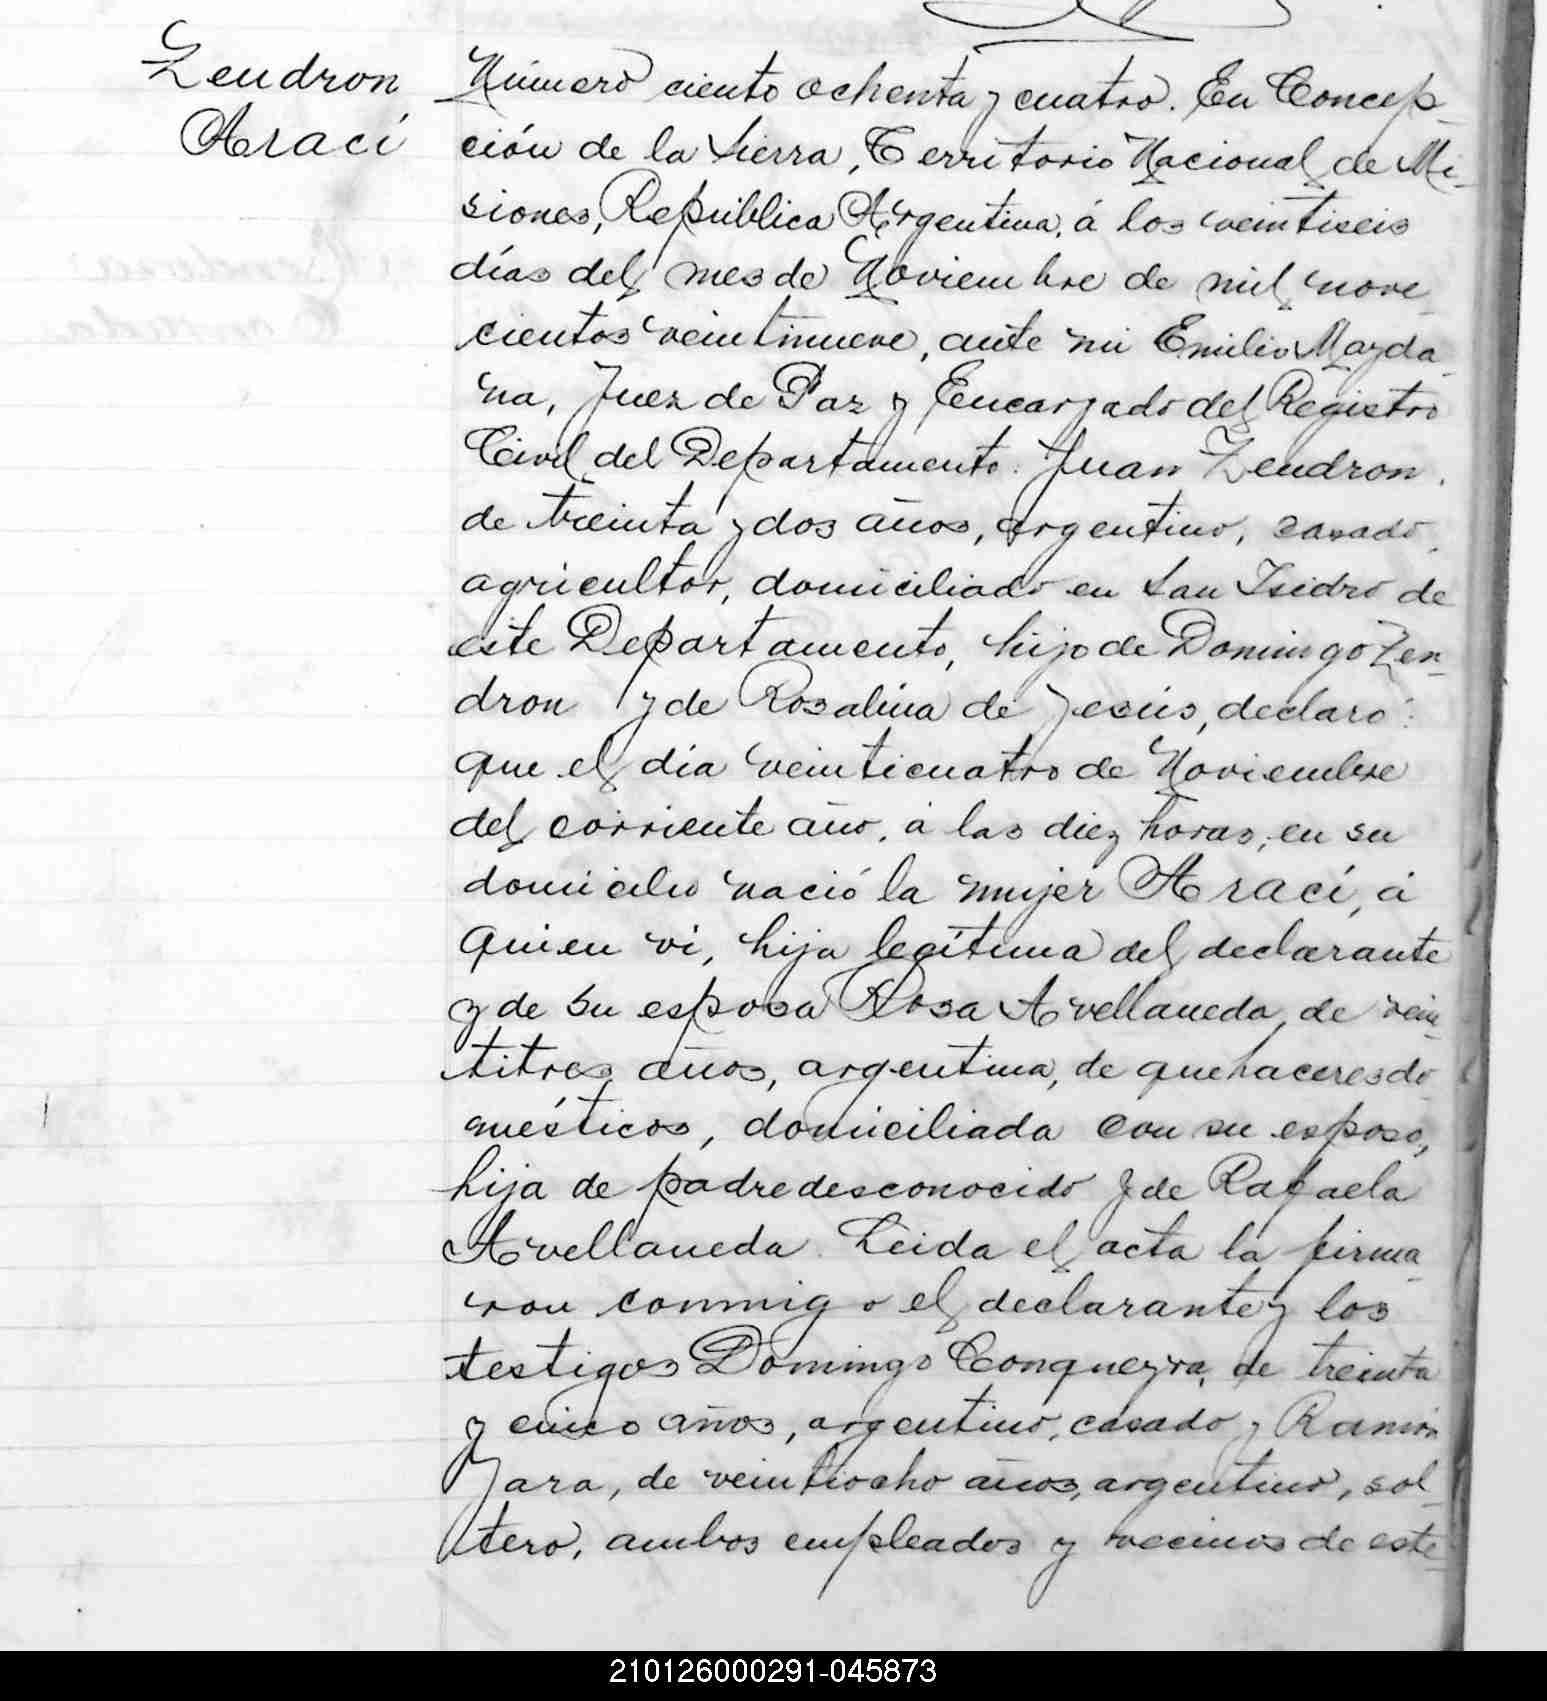 Zendron
Arací
Número ciento ochenta y cuatro. En Concep-
ción de la Sierra, Territorio Nacional de Mi-
siones, República Argentina, á los veintiseis
días del mes de Noviembre de mil nove-
cientos veintinueve, ante mi Emilio Mayda-
na, Juez de Paz y Encargado del Registro
Civil del Departamento. Juan Zendron,
de treinta y dos años, argentino, casado,
agricultor, domiciliado en San Isidro de
este Departamento, hijo de Domingo Zen-
dron y de Rosalina de Jesús, declaró:
que el día veinticuatro de Noviembre
del corriente año, á las diez horas, en su
domicilio nació la mujer Arací, á
quien vi, hija legítima del declarante
y de su esposa Rosa Avellaneda, de vein-
titres años, argentina, de quehaceres do-
mésticos, domiciliada con su esposo,
hija de padre desconocido y de Rafaela
Avellaneda. Leida el acta la firma-
ron conmigo el declarante y los
testigos Domingo Conqueyra, de treinta
y cinco años, argentino, casado y Ramón
Jara, de veintiocho años, argentino, sol-
tero, ambos empleados y vecinos de este
210126000291-045873